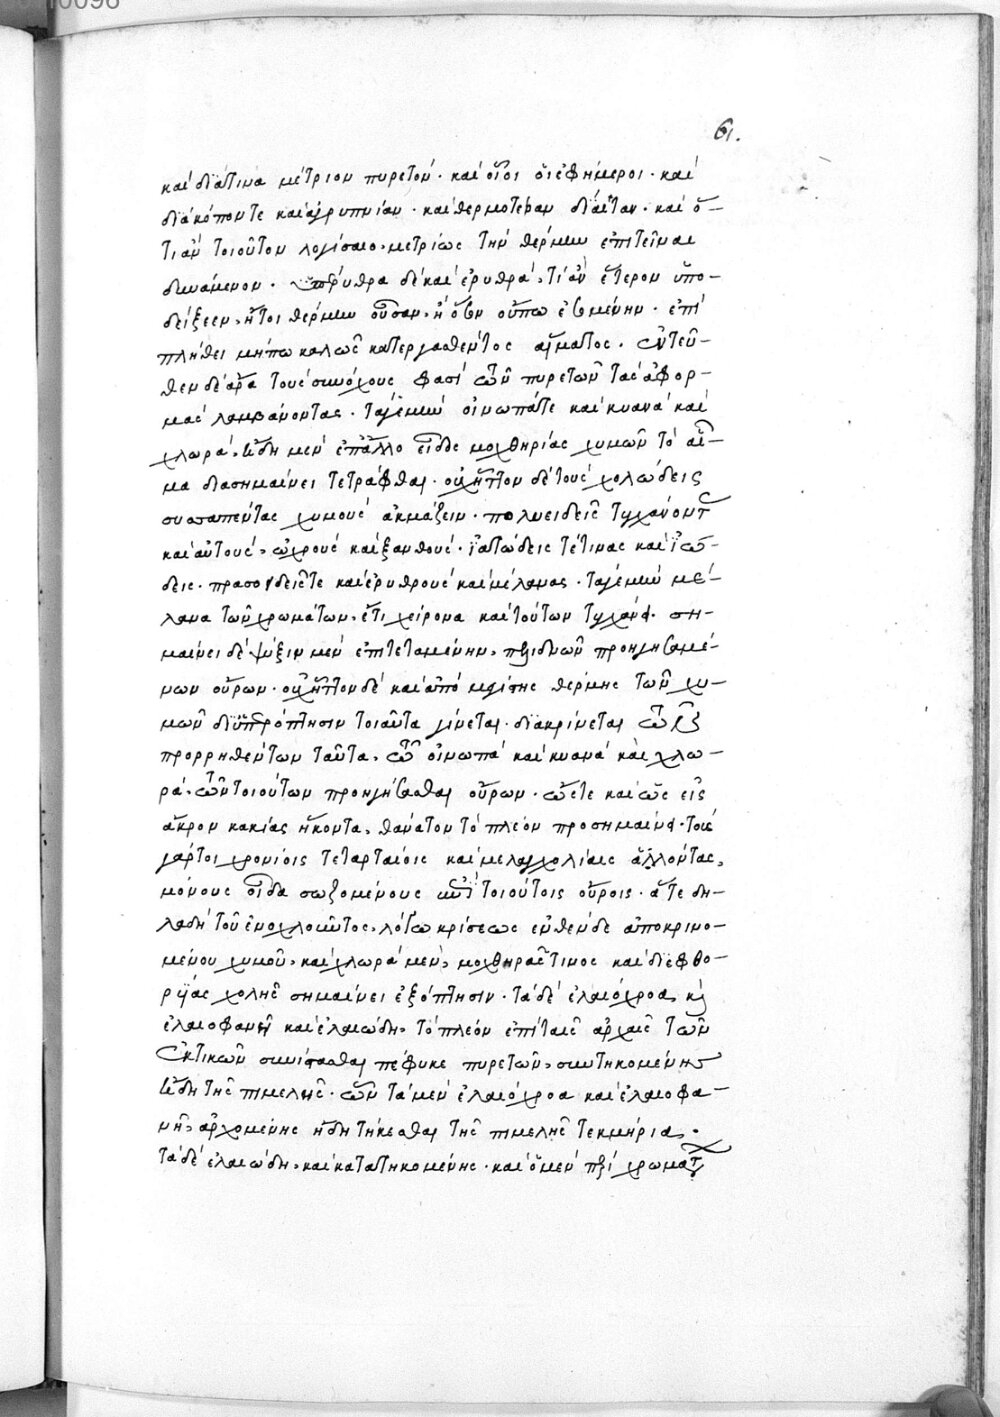 61.
καὶ διά τινα μέτριον πυρετόν · καὶ οἷοι οἱ ἐφήμεροι · καὶ
διὰ κόπον τε καὶ ἀγρυπνίαν · καὶ θερμοτέραν δίαιταν · καὶ ὅ-
τι ἂν τοιοῦτον λογίσαιο, μετρίως τὴν θέρμην ἐπιτεῖναι
δυνάμενον · ὑπέρυθρα δὲ καὶ ἐρυθρά, τί ἂν ἕτερον ὑπο-
δείξειεν, ἤτοι θέρμην οὖσαν, ἢ ὅσον οὔπω ἐσομένην · ἐπὶ
πλήθει μήπω καλῶς κατεργασθέντος αἵματος · ἐντεῦ-
θεν δὲ ἄρα τοὺς συνόχους φασὶ τῶν πυρετῶν τὰς ἀφορ-
μὰς λαμβάνοντας · τά γε μὴν οἰνωπά τε καὶ κυανὰ καὶ
χλωρά, ἤδη μὲν ἐπ' ἄλλο εἶδος μοχθηρίας χυμῶν τὸ αἷ-
μα διασημαίνει τετράφθαι · οὐχ ἧττον δὲ τοὺς χολώδεις
συσσαπέντας χυμοὺς ἀκμάζειν · πολυειδεῖς τυγχάνοντας
καὶ αὐτούς, ὠχροὺς καὶ ξανθούς · ἰσατώδεις τέ τινας καὶ ἰώ-
δεις · πρασοειδεῖς τε καὶ ἐρυθροὺς καὶ μέλανας · τά γε μὴν μέ-
λανα τῶν χρωμάτων, ἔτι χείρονα καὶ τούτων τυγχάνει · ση-
μαίνει δὲ ψύξιν μὲν ἐπιτεταμένην, πελιδνῶν προηγησαμέ-
νων οὔρων · οὐχ ἧττον δὲ καὶ ἀπὸ μεγίστης θέρμης τῶν χυ-
μῶν δι' ὑπερόπτησιν τοιαῦτα γίνεται · διακρίνεται
προρρηθέντων ταῦτα, τῷ οἰνωπὰ καὶ κυανὰ καὶ χλω-
ρά, τῶν τοιούτων προηγήσασθαι οὔρων · ὥστε καὶ ὡς εἰς
ἄκρον κακίας ἥκοντα, θάνατον τὸ πλέον προσημαίνει · τοὺς
γάρ τοι χρονίοις τεταρταίοις καὶ μελαγχολίαις ἁλόντας,
μόνους οἶδα σωζομένους ἐπὶ τοιούτοις οὔροις · ἅτε δη-
λαδὴ τοῦ ἐνοχλοῦντος, λόγῳ κρίσεως ἐνθένδε ἀποκρινο-
μένου χυμοῦ, καὶ χλωρὰ μέν, μοχθηρᾶς τινος καὶ διεφθο-
ρυίας χολῆς σημαίνει ἐξόπτησιν · τὰ δὲ ἐλαιόχροα, καὶ
ἐλαιοφανῆ καὶ ἐλαιώδη, τὸ πλέον ἐπὶ ταῖς ἀρχαῖς τῶν
ἑκτικῶν συνίστασθαι πέφυκε πυρετῶν, συντηκομένης
ἤδη τῆς πιμελῆς · ὧν τὰ μὲν ἐλαιόχροα καὶ ἐλαιοφα-
νῆ, ἀρχομένης ἤδη τήκεσθαι τῆς πιμελῆς τεκμήρια ·
τὰ δὲ ἐλαιώδη, καὶ κατατηκομένης · καὶ ὁ μὲν περὶ χρωμάτων